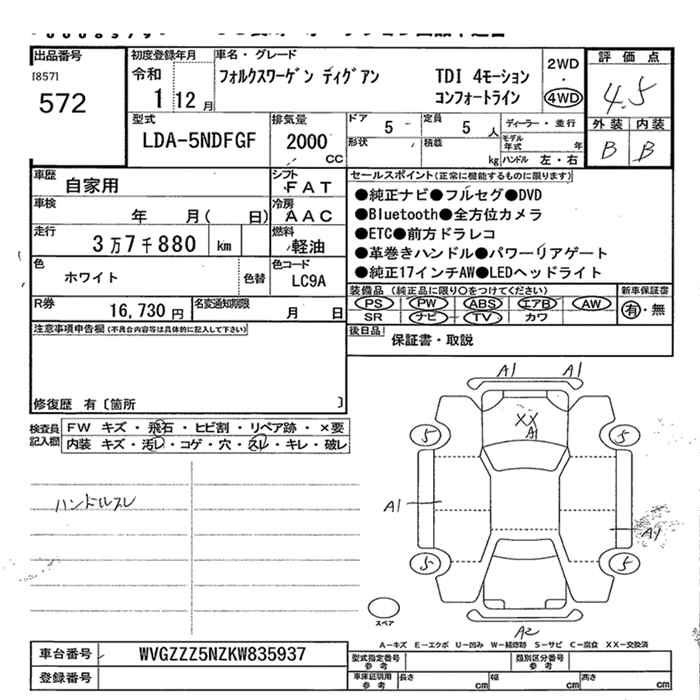 出品番号
[857]
572
初度登録年月
令和
1 12月
車名・グレード
フォルクスワーゲン ティグアン
TDI 4モーション
コンフォートライン
2WD
・
4WD
評価点
4.5
外装 内装
B B
型式
LDA-5NDFGF
排気量
2000
CC
ドア 5
定員 5 人
形状
積載 kg
ディーラー・並行
モデル年式 年
ハンドル 左・右
車歴 自家用
シフト FAT
車検 年 月( 日)
冷房 AAC
走行 3万7千880 km
燃料 軽油
色 ホワイト 色替
色コード LC9A
R券 16,730円
名変通知期限 月 日
セールスポイント(正常に機能するものに限ります)
●純正ナビ●フルセグ●DVD
●Bluetooth●全方位カメラ
●ETC●前方ドラレコ
●革巻きハンドル●パワーリアゲート
●純正17インチAW●LEDヘッドライト
装備品 (純正品に限り○をつけてください)
PS PW ABS エアB AW
SR ナビ TV カワ
新車保証書
有・無
後日品
保証書・取説
注意事項申告欄(不具合内容等は具体的に記入して下さい)
修復歴 有〔箇所 〕
検査員記入欄
FW キズ・飛石・ヒビ割・リペア跡・×要
内装 キズ・汚レ・コゲ・穴・スレ・キレ・破レ
ハンドルスレ
A1 A1
XX
A1
5 5
A1
A1
5 5
スペア
A2
A-キズ E-エクボ U-凹み W-補修跡 S-サビ C-腐食 XX-交換済
車台番号 WVGZZZ5NZKW835937
登録番号
型式指定番号 参考
類別区分番号 参考
車庫証明用 参考
長さ cm
幅 cm
高さ cm